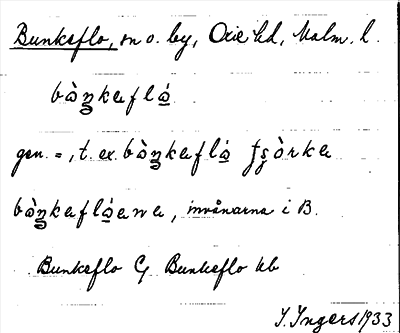 Bunkeflo, sn o. by, Oxie hd, Malm. l.
bòŋkaflá̱
gen. =, t. ex. bòŋkaflá̱ ʃɕòrka
bòŋkaflá̱ana, invånarna i B.
Bunkeflo G Bunkeflo hb
I. Ingers 1933